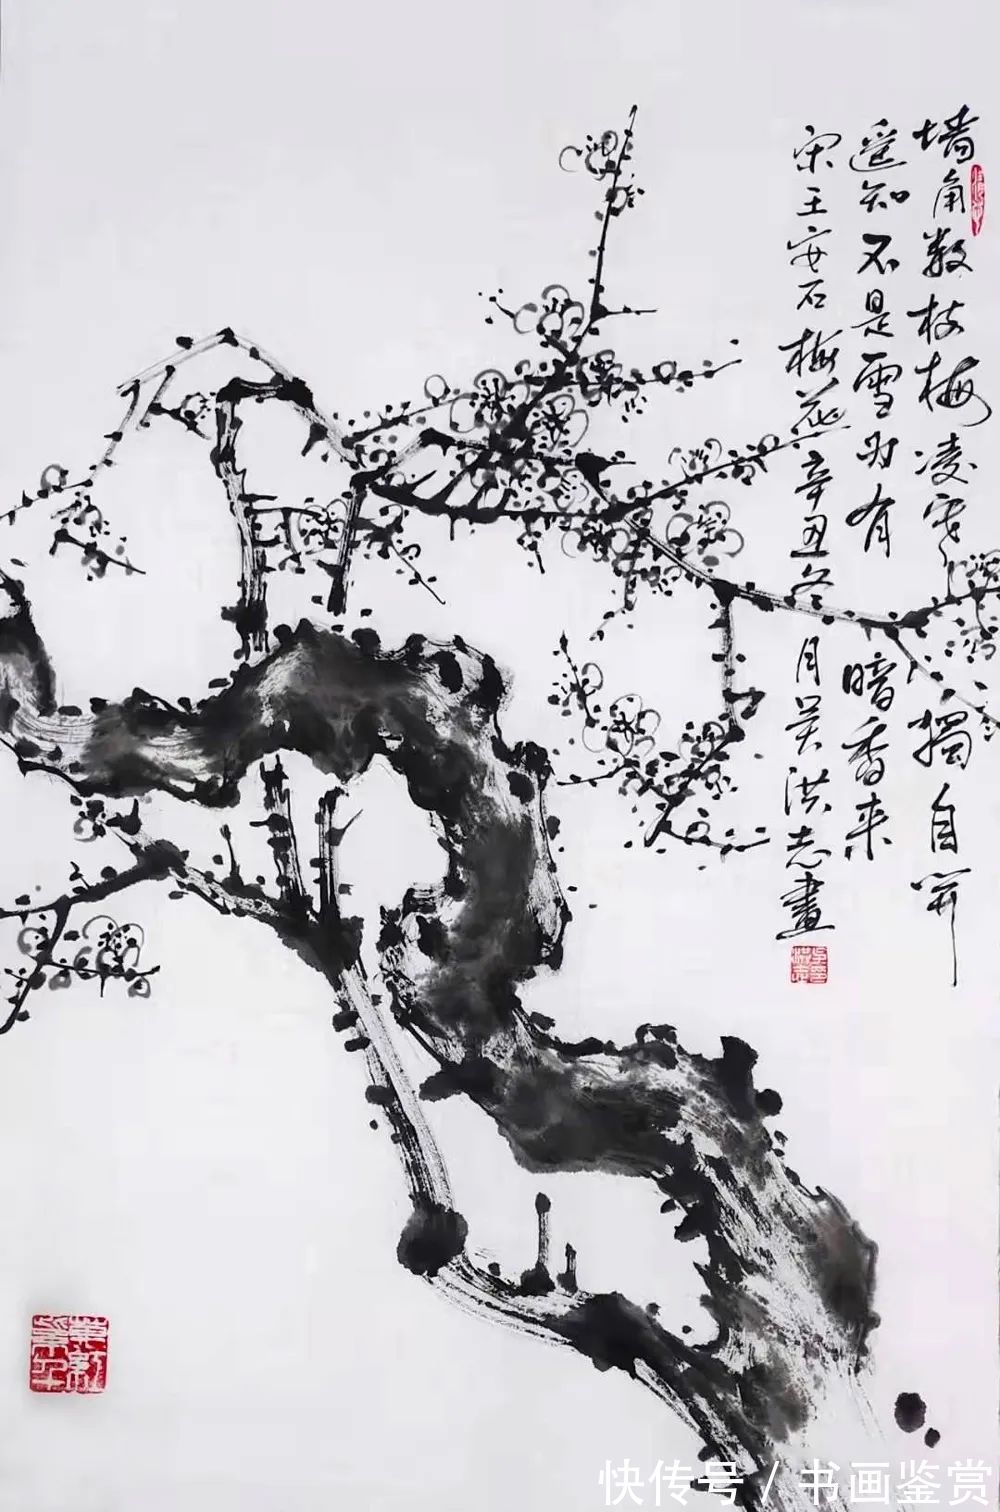 墙角数枝梅凌寒獨自開
遥知不是雪为有暗香来
宋王安石梅花辛丑冬月吴洪志畫
快传号／书画鉴赏